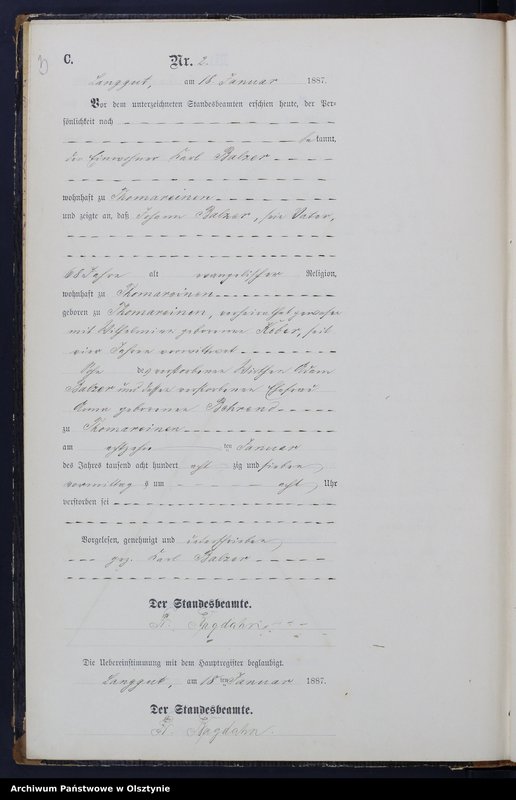 C.
Nr. 2.
Langgut, am 18 Januar 1887.
Vor dem unterzeichneten Standesbeamten erschien heute, der Per-
sönlichkeit nach
bekannt,
der Einwohner Karl Balzer
wohnhaft zu Thomareinen
und zeigte an, daß Johann Balzer, sein Vater,
68 Jahre alt evangelischer Religion,
wohnhaft zu Thomareinen
geboren zu Thomareinen, verheirathet gewesen
mit Wilhelmine geborenen Keber, seit
vier Jahren verwittwet
Sohn des verstorbenen Wirthen Adam
Balzer und dessen verstorbenen Ehefrau
Anna geborenen Behrend
zu Thomareinen
am achtzehn ten Januar
des Jahres tausend acht hundert acht zig und sieben
vormittag s um acht Uhr
verstorben sei
Vorgelesen, genehmigt und unterschrieben
gez. Karl Balzer
Der Standesbeamte.
Jagdahn
Die Uebereinstimmung mit dem Hauptregister beglaubigt.
Langgut, am 18 ten Januar 1887.
Der Standesbeamte.
Jagdahn.
Archiwum Państwowe w Olsztynie